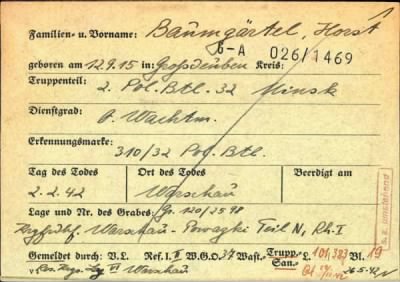 Familien- u. Vorname: Baumgärtel, Horst
G-A 026/1469
geboren am 12.9.15 in: Großdeuben Kreis:
Truppenteil: 2. Pol. Btl. 32 Minsk
Dienstgrad: O. Wachtm.
Erkennungsmarke: 310/32 Pol. Btl.
Tag des Todes Ort des Todes Beerdigt am
2.2.42 Warschau
Lage und Nr. des Grabes: Gr. 120/2598
Warschau - Powazki Teil N, Rh. I
Gemeldet durch: V.L. Ref. I. II W.G.O. 37 Wast.- Trupp.- San.- L. 101,383 Bl. 19
VI Warschau 26.5.42
s.a. umstehend